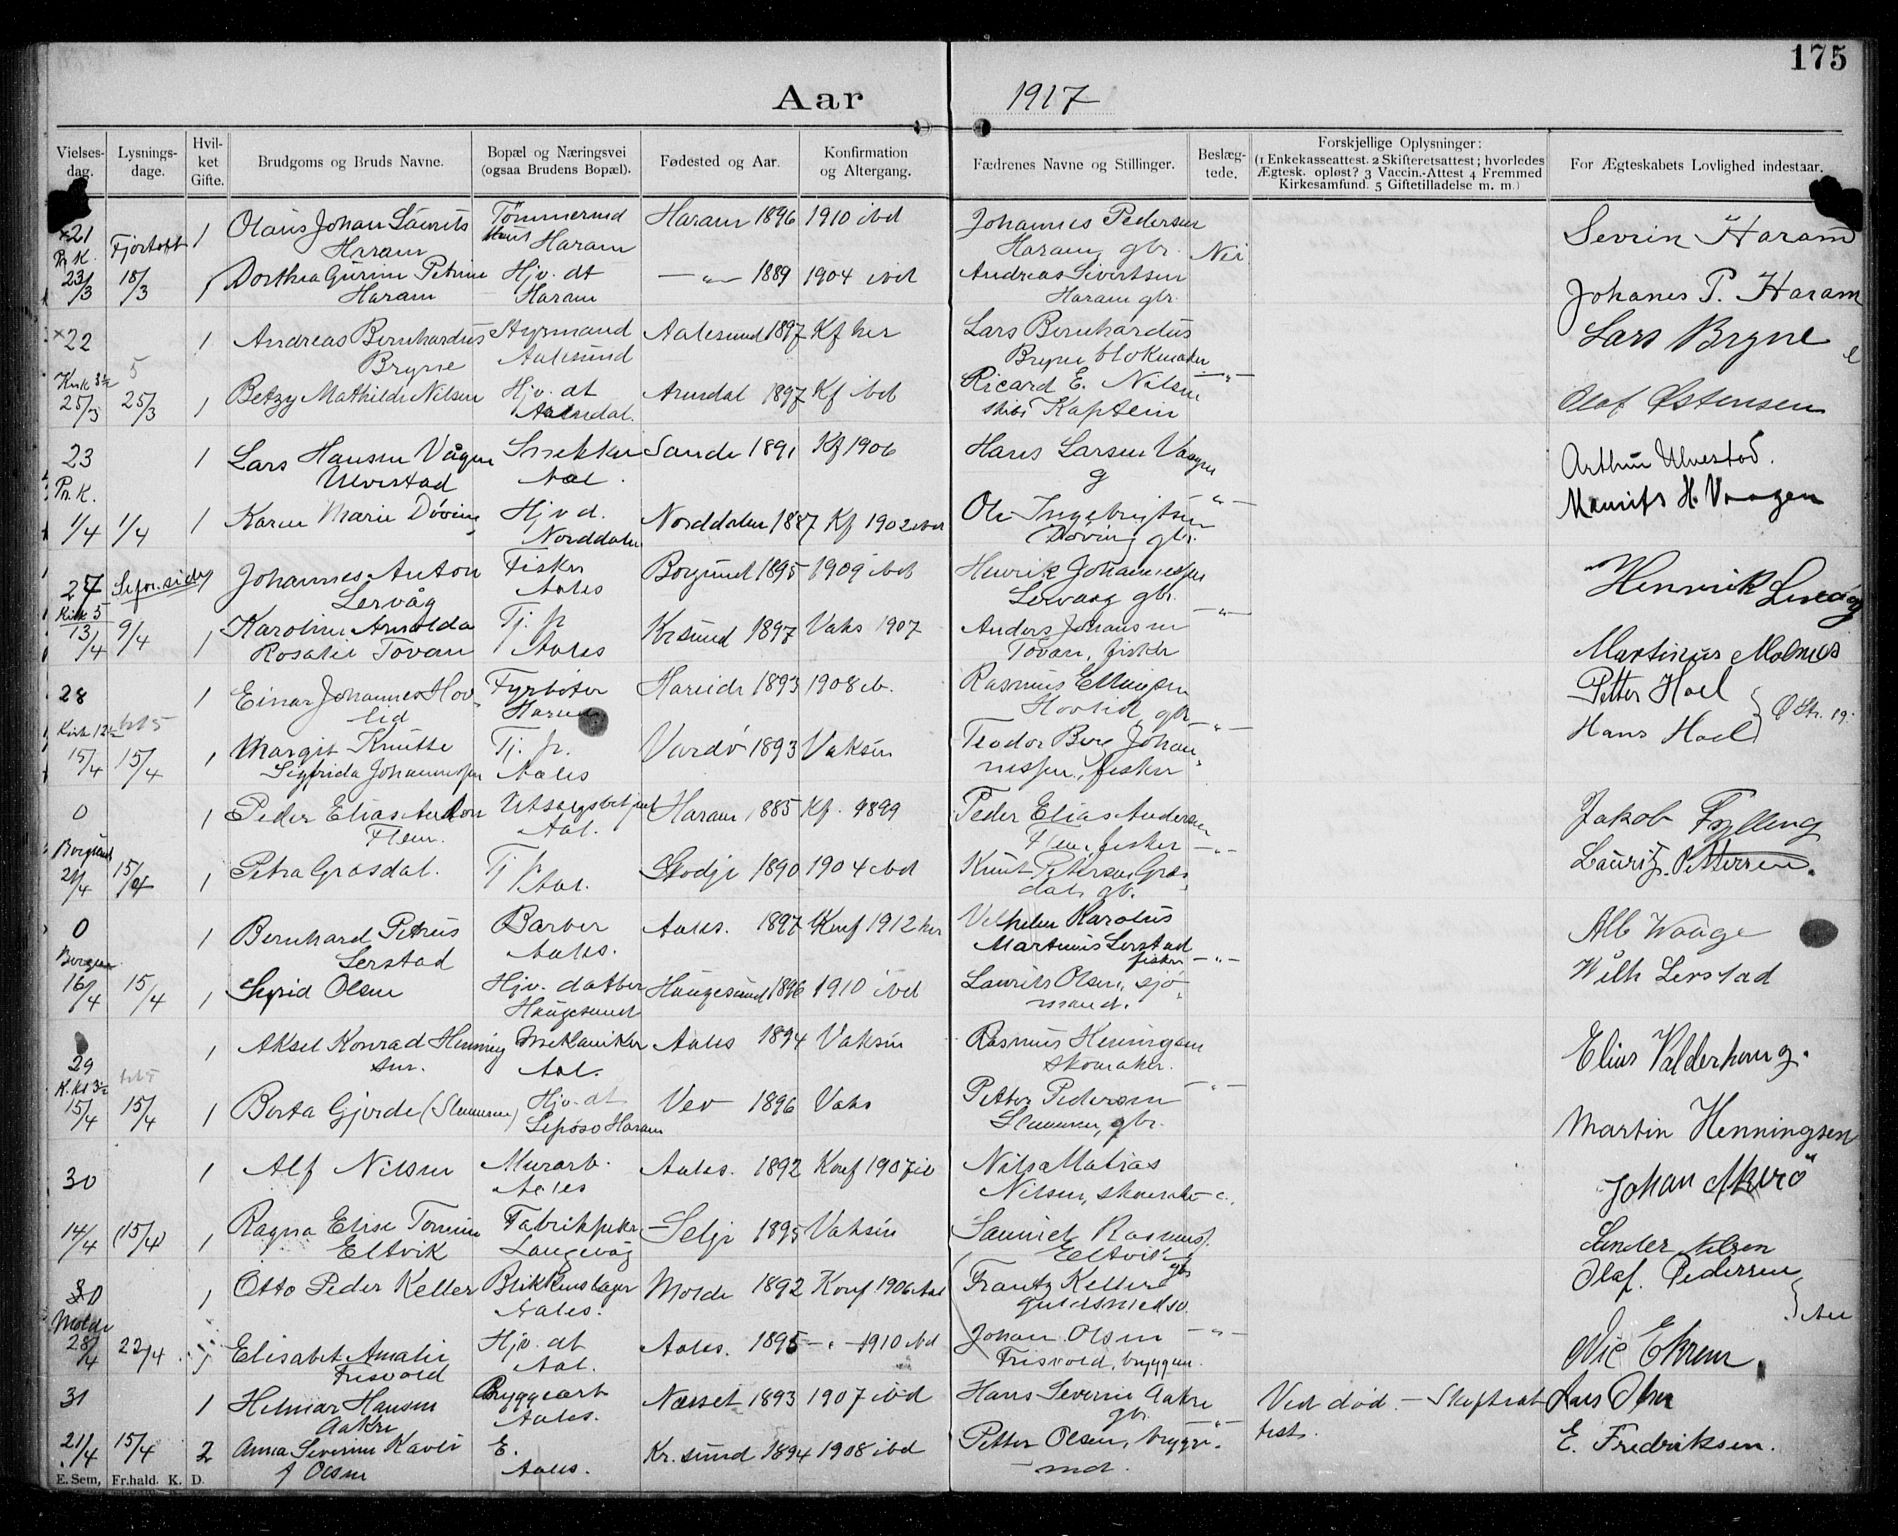 175
Aar 1917
Vielses-dag. Lysnings-dage. Hvil-ket Gifte. Brudgoms og Bruds Navne. Bopæl og Næringsvei (ogsaa Brudens Bopæl). Fødested og Aar. Konfirmation og Altergang. Fædrenes Navne og Stillinger. Beslæg-tede. Forskjellige Oplysninger: (1 Enkekasseattest. 2 Skifteretsattest; hvorledes Ægtesk. opløst? 3 Vaccin.-Attest 4 Fremmed Kirkesamfund. 5 Giftetilladelse m. m.) For Ægteskabets Lovlighed indestaar.
×21 Fjørtoft 1 Olaus Johan Laurits Haram 1896 1910 ibd Johannes Pedersen Sevrin Haram
Pr. K. Haram Haram Haram gbr. Nei
23/3 18/3 1 Dorthea Gurine Petrine Hjv. dt —"— 1889 1904 ibd Andreas Sivertsen Johanes P. Haram
Haram Haram Haram gbr.
×22 1 Andreas Bernhardus Styrmand Aalesund 1897 Kf her Lars Bernhardus Lars Bryne
5 Bryne Aalesund Bryne blokmaker
25/3 25/3 1 Betzy Mathilde Nilsen Hjv. dt Arendal 1897 Kf ibd Ricard E. Nilsen —"— Olaf Østensen
skibs Kaptein
23 1 Lars Hansen Vågne Snekker Sande 1891 Kf 1906 Hans Larsen Vaagne Arthur Ulvestad.
Pr. K. Ulvestad Aal. g —"— Maurits H. Vaagen
1/4 1/4 1 Karen Marie Døving Hjv d. Norddalen 1887 Kf 1902 ibd Ole Ingebrigtsen
Norddalen Døving gbr.
27 1 Johannes Anton Fisker Borgund 1895 1909 ibd Henrik Johannesen Henrik Lervåg
Kirk 5 Lervåg Aales Lervaag gbr. —"—
13/4 9/4 1 Karoline Arnolda Tj. p Krsund 1897 Vaks 1907 Anders Johansen Martinus Molnes
Rosalie Tovan Aales Tovan, fisker
28 1 Einar Johannes Hov- Fyrbøter Hareide 1893 1908 ib. Rasmus Ellingsen Petter Hoel
lid Hareid Hovlid gbr. —"— Hans Hoel
15/4 15/4 1 Margit Knutte Tj. p. Vardø 1893 Vaksin Teodor Berg Johan-
Sigfrida Johannesen Aales nesen, fisker
0 1 Peder Elias Anton Haram 1885 Kf. 1899 Peder Elias Andersen Jakob Fylling
Borgund Flem. Aal. Flem, fisker —"—
21/4 15/4 1 Petra Grøsdal. Tj p Skodje 1890 1904 ibd Knut Petersen Laurits Pettersen.
Aal. gb.
0 1 Bernhard Petrus Barber Aales. 1897 Konf 1912 her Vilhelm Karolus Alb Waage
Bergen Lerstad Aales. Martinus Lerstad fisker —"—
16/4 15/4 1 Sigrid Olsen Hjv. datter Haugesund 1896 1910 ibd Laurits Olsen, sjø- Wilh Lerstad
Haugesund mand.
29 1 Aksel Konrad Henning- Mekaniker Aales 1894 Vaksin Rasmus Henningsen Elias Valderhaug.
sen. Aal. skomaker. —"—
15/4 15/4 1 Berta Gjørde Hjv. dt Vev 1896 Vaks Petter Pedersen Martin Henningsen
Lepsø Haram gbr.
30 1 Alf Nilsen Murarb. Aales. 1892 Konf 1907 ib Nils Matias Johan Akerø
Aales Nilsen,
14/4 (15/4) 1 Ragna Elise Fabrikpike Selje 1895 Vaksin Samuel Rasmus. Sander Nilsen
Eltvik Langevåg Eltvik gbr
30 1 Otto Peder Keller Blikkenslager Molde 1892 Konf 1906 Frantz Keller Olaf. Pedersen
Molde Aales. guldsmed
28/4 22/4 1 Elisabet Amalie Hjv. dt Aales. 1895 —"— 1910 ibd Johan Olsen —"— Nic Ekrem.
Frisvold Aal. Frisvold,
31 1 Hilmar Hansen Bryggearb Nesset 1893 1907 ibd Hans Severin Aakre Ved død. — Skiftrat- Lars Olsen
Aakre Aales. gbr. —"— test.
21/4 15/4 2 Anna Severine Kavli E. Kr. sund 1894 1908 ibd Petter Olsen, brygge- E. Fredriksen.
f Olsen Aales. md.
E. Sem, Fr.hald. K. D.